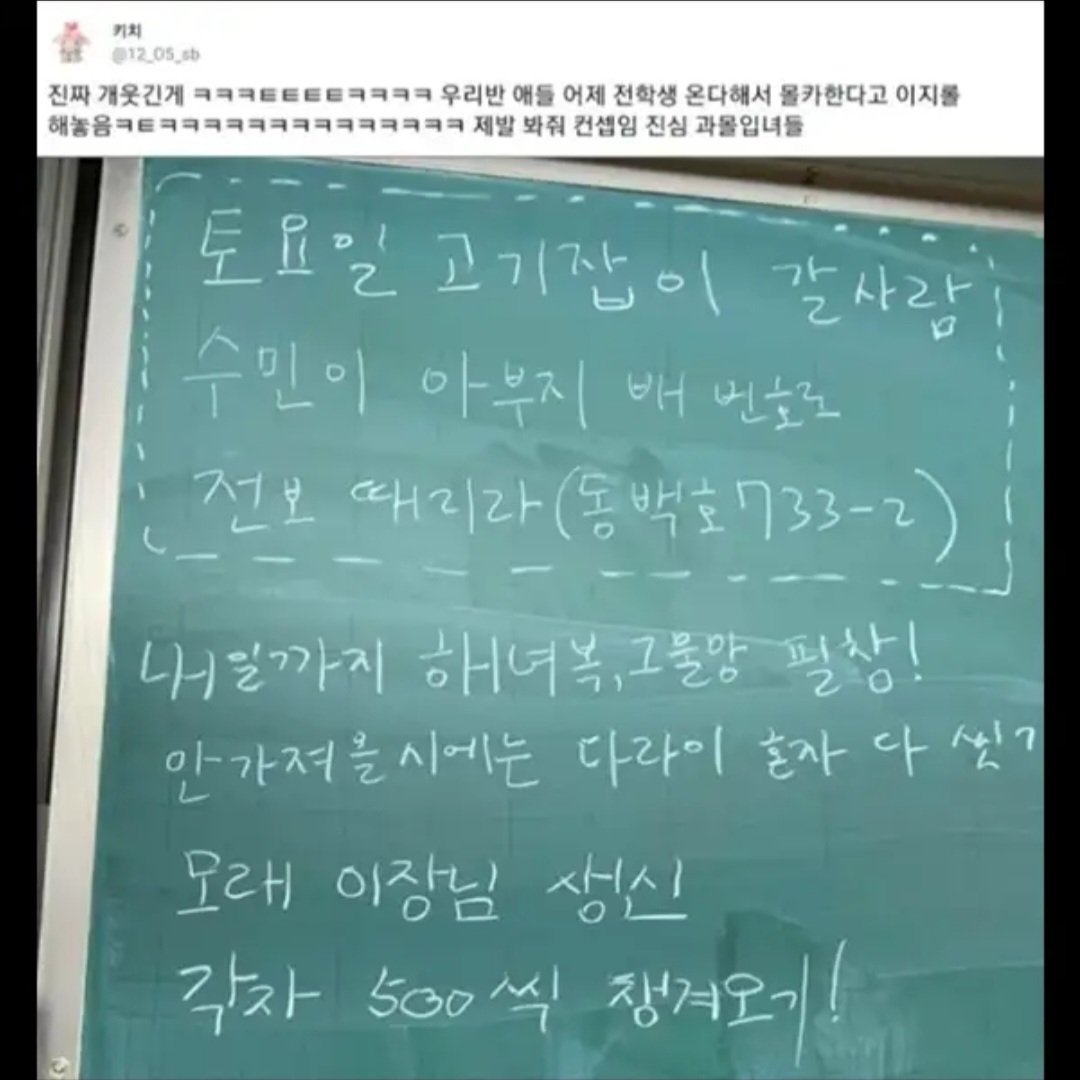 키치
@12_05_sb
진짜 개웃긴게 ㅋㅋㅋㅌㅌㅌㅌㅋㅋㅋㅋ 우리반 애들 어제 전학생 온다해서 몰카한다고 이지롤
해놓음ㅋㅌㅋㅋㅋㅋㅋㅋㅋㅋㅋㅋㅋㅋㅋㅋ 제발 봐줘 컨셉임 진심 과몰입녀들
토요일 고기잡이 갈사람
수민이 아부지 배 번호로
전보 때리라(동백호733-2)
내일까지 해녀복,그물망 필참!
안가져올시에는 다라이 혼자 다 씻기
모래 이장님 생신
각자 500씩 챙겨오기!